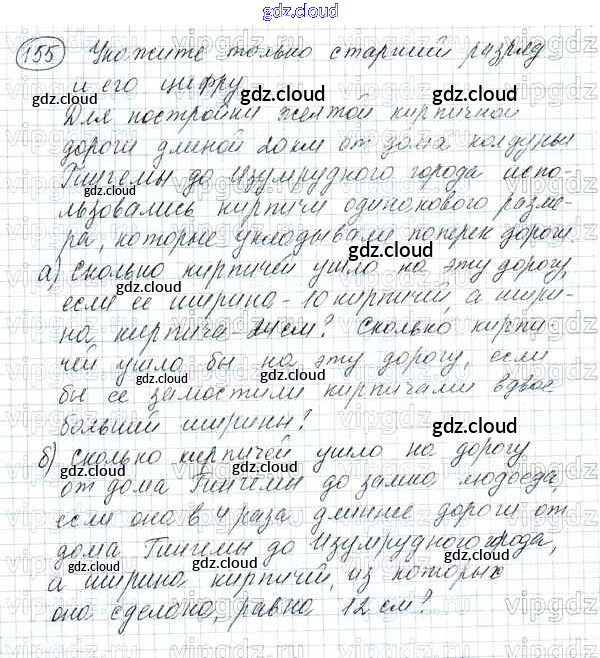 gdz.cloud
155 Укажите только старший разряд
и его цифру
Для постройки желтой кирпичной
дороги длиной 20 км от дома колдуньи
Гингемы до Изумрудного города испо-
льзовались кирпичи одинакового разме-
ра, которые укладывали поперек дороги.
а) Сколько кирпичей ушло на эту дорогу,
если ее ширина - 10 кирпичей, а шири-
на кирпича 24 см? Сколько кирпи
чей ушло бы на эту дорогу, если
бы ее замостили кирпичами вдвое
большей ширины?
б) Сколько кирпичей ушло на дорогу
от дома Гингемы до замка людоеда,
если она в 4 раза длиннее дороги от
дома Гингемы до Изумрудного города,
а ширина кирпичей, из которых
она сделана, равна 12 см?